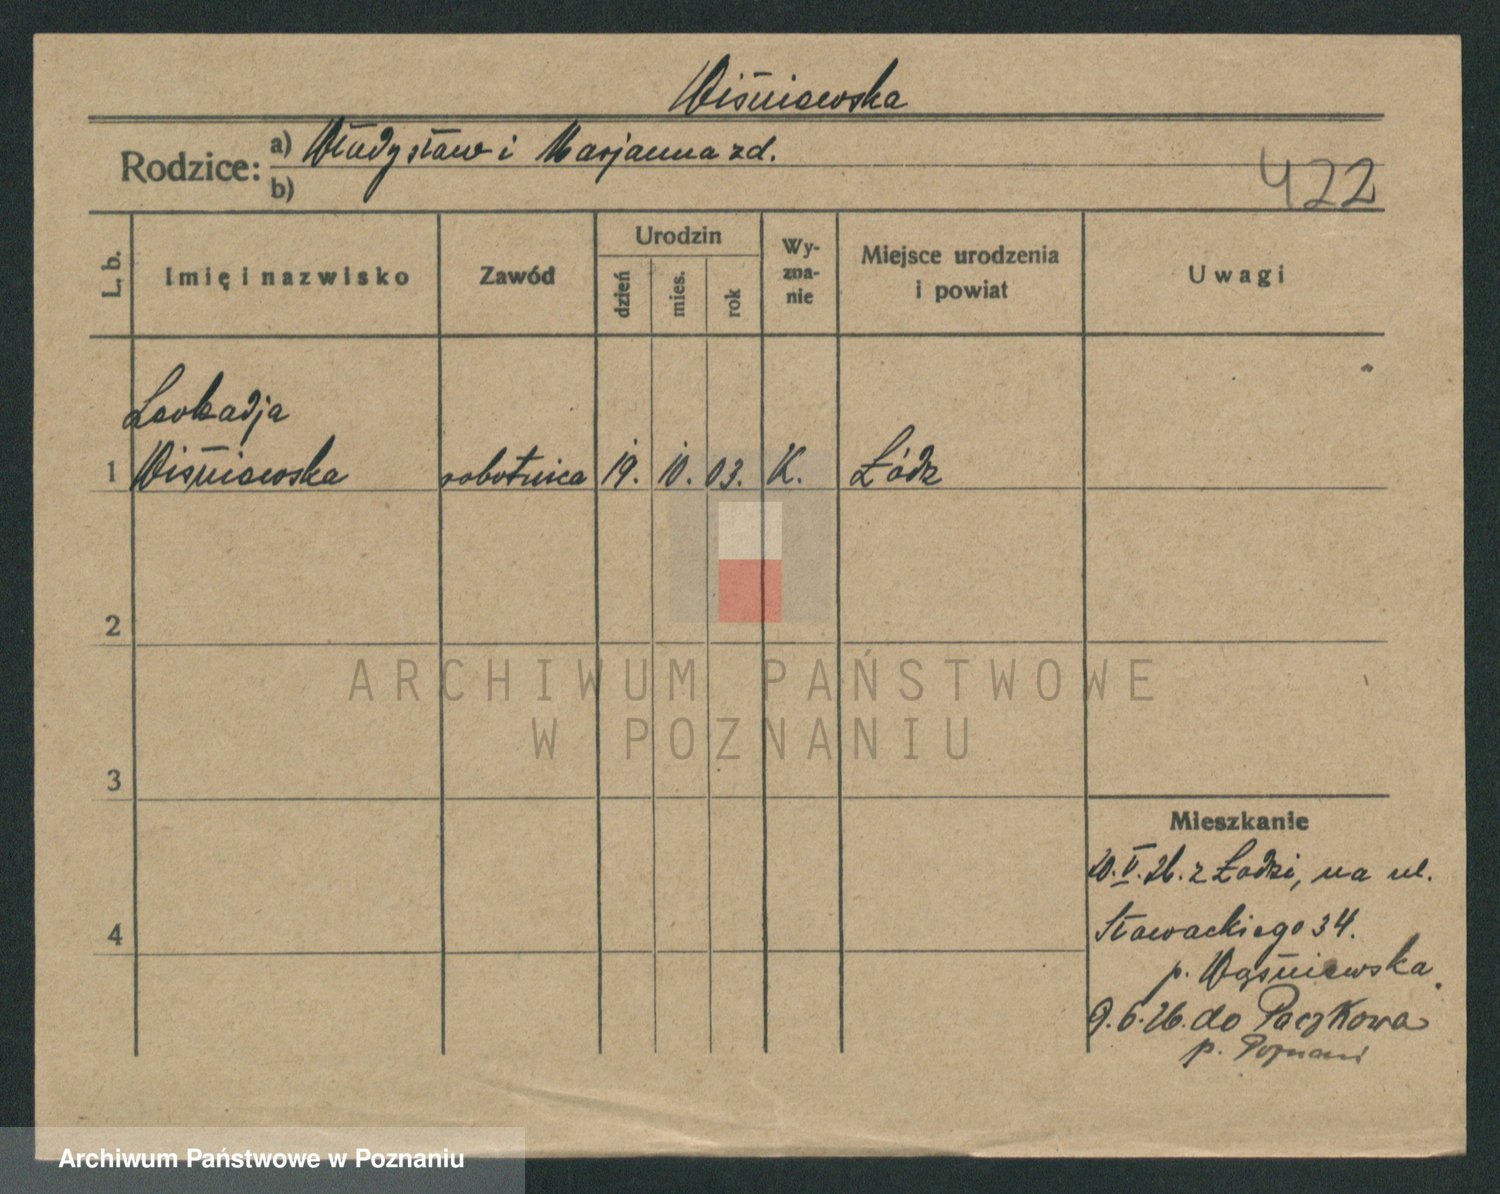 Wiśniewska
Rodzice: a) Władysław i Marjanna zd.
b)
422
L. b.
Imię i nazwisko
Zawód
Urodzin
dzień
mies.
rok
Wy-
zna-
nie
Miejsce urodzenia
i powiat
Uwagi
Leokadja
1 Wiśniewska robotnica 19. 10. 03. K. Łódz
2
ARCHIWUM PAŃSTWOWE
W POZNANIU
3
4
Mieszkanie
20.V.26. z Łodzi, na ul.
Słowackiego 34.
p. Wąśniewska.
9.6.26. do Paczkowa
p. Poznań
Archiwum Państwowe w Poznaniu